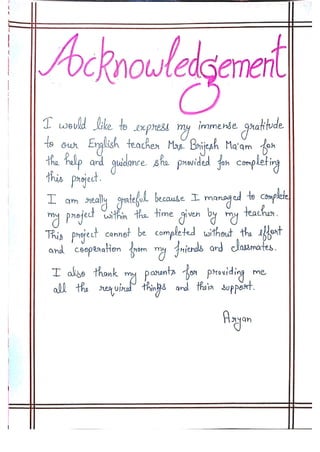 Acknowledgement
I would like to express my immense gratitude
to our English teacher Mrs. Brijesh Ma'am for
the help and guidance she provided for completing
this project.
I am really grateful because I managed to complete
my project within the time given by my teacher.
This project cannot be completed without the effort
and cooperation from my friends and classmates.
I also thank my parents for providing me
all the required things and their support.
Aryan